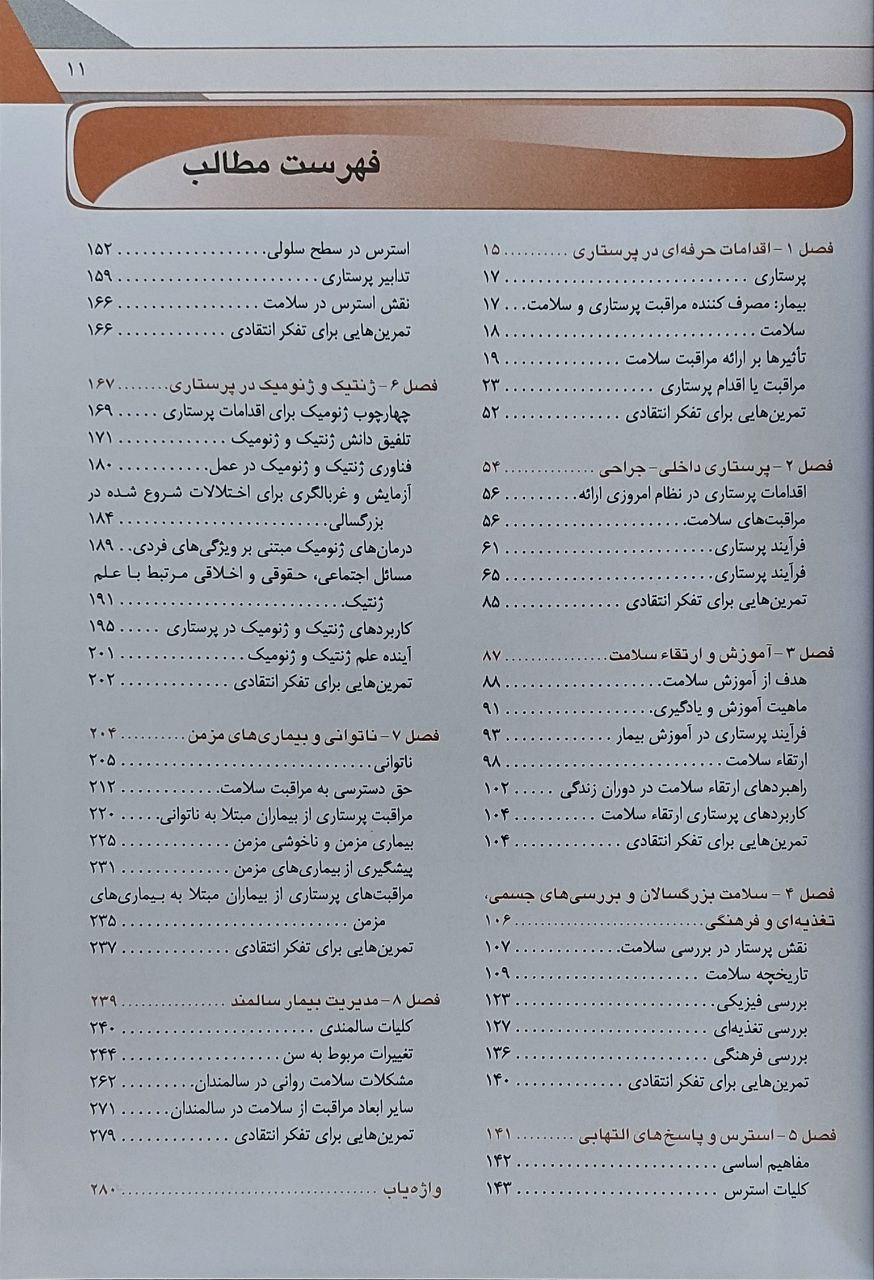 ۱۱
فهرست مطالب
فصل ۱- اقدامات حرفه‌ای در پرستاری .......... ۱۵
پرستاری ............................ ۱۷
بیمار: مصرف کننده مراقبت پرستاری و سلامت... ۱۷
سلامت .............................. ۱۸
تأثیرها بر ارائه مراقبت سلامت .............. ۱۹
مراقبت یا اقدام پرستاری .................. ۲۳
تمرین‌هایی برای تفکر انتقادی .............. ۵۲
فصل ۲- پرستاری داخلی- جراحی .............. ۵۴
اقدامات پرستاری در نظام امروزی ارائه......... ۵۶
مراقبت‌های سلامت...................... ۵۶
فرآیند پرستاری......................... ۶۱
فرآیند پرستاری......................... ۶۵
تمرین‌هایی برای تفکر انتقادی .............. ۸۵
فصل ۳- آموزش و ارتقاء سلامت............... ۸۷
هدف از آموزش سلامت................... ۸۸
ماهیت آموزش و یادگیری.................. ۹۱
فرآیند پرستاری در آموزش بیمار ............. ۹۳
ارتقاء سلامت .......................... ۹۸
راهبردهای ارتقاء سلامت در دوران زندگی ..... ۱۰۲
کاربردهای پرستاری ارتقاء سلامت .......... ۱۰۴
تمرین‌هایی برای تفکر انتقادی ............. ۱۰۴
فصل ۴- سلامت بزرگسالان و بررسی‌های جسمی،
تغذیه‌ای و فرهنگی........................... ۱۰۶
نقش پرستار در بررسی سلامت............. ۱۰۷
تاریخچه سلامت ....................... ۱۰۹
بررسی فیزیکی........................ ۱۲۳
بررسی تغذیه‌ای ....................... ۱۲۷
بررسی فرهنگی ....................... ۱۳۶
تمرین‌هایی برای تفکر انتقادی ............. ۱۴۰
فصل ۵- استرس و پاسخ‌های التهابی .......... ۱۴۱
مفاهیم اساسی ........................ ۱۴۲
کلیات استرس ........................ ۱۴۳
استرس در سطح سلولی.................. ۱۵۲
تدابیر پرستاری ........................ ۱۵۹
نقش استرس در سلامت ................. ۱۶۶
تمرین‌هایی برای تفکر انتقادی ............. ۱۶۶
فصل ۶- ژنتیک و ژنومیک در پرستاری........ ۱۶۷
چهارچوب ژنومیک برای اقدامات پرستاری ..... ۱۶۹
تلفیق دانش ژنتیک و ژنومیک ............. ۱۷۱
فناوری ژنتیک و ژنومیک در عمل........... ۱۸۰
آزمایش و غربالگری برای اختلالات شروع شده در
بزرگسالی........................... ۱۸۴
درمان‌های ژنومیک مبتنی بر ویژگی‌های فردی.. ۱۸۹
مسائل اجتماعی، حقوقی و اخلاقی مرتبط با علم
ژنتیک............................. ۱۹۱
کاربردهای ژنتیک و ژنومیک در پرستاری ..... ۱۹۵
آینده علم ژنتیک و ژنومیک............... ۲۰۱
تمرین‌هایی برای تفکر انتقادی ............. ۲۰۲
فصل ۷- ناتوانی و بیماری‌های مزمن .......... ۲۰۴
ناتوانی.............................. ۲۰۵
حق دسترسی به مراقبت سلامت............ ۲۱۲
مراقبت پرستاری از بیماران مبتلا به ناتوانی..... ۲۲۰
بیماری مزمن و ناخوشی مزمن ............. ۲۲۵
پیشگیری از بیماری‌های مزمن ............. ۲۳۱
مراقبت‌های پرستاری از بیماران مبتلا به بیماری‌های
مزمن ............................. ۲۳۵
تمرین‌هایی برای تفکر انتقادی ............. ۲۳۷
فصل ۸- مدیریت بیمار سالمند ................ ۲۳۹
کلیات سالمندی ....................... ۲۴۰
تغییرات مربوط به سن ................... ۲۴۴
مشکلات سلامت روانی در سالمندان......... ۲۶۲
سایر ابعاد مراقبت از سلامت در سالمندان...... ۲۷۱
تمرین‌هایی برای تفکر انتقادی ............. ۲۷۹
واژه‌یاب ..................................... ۲۸۰